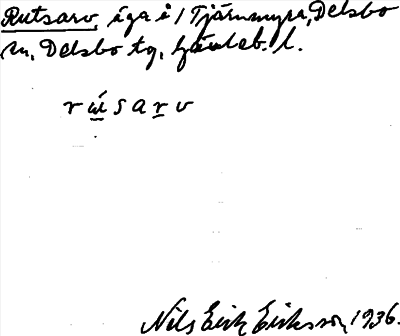 Rutsarv, äga i 1 Tjärnmyra, Delsbo
sn, Delsbo tg, Gävleb. l.
rúsarv
Nils Erik Eriksson, 1936.